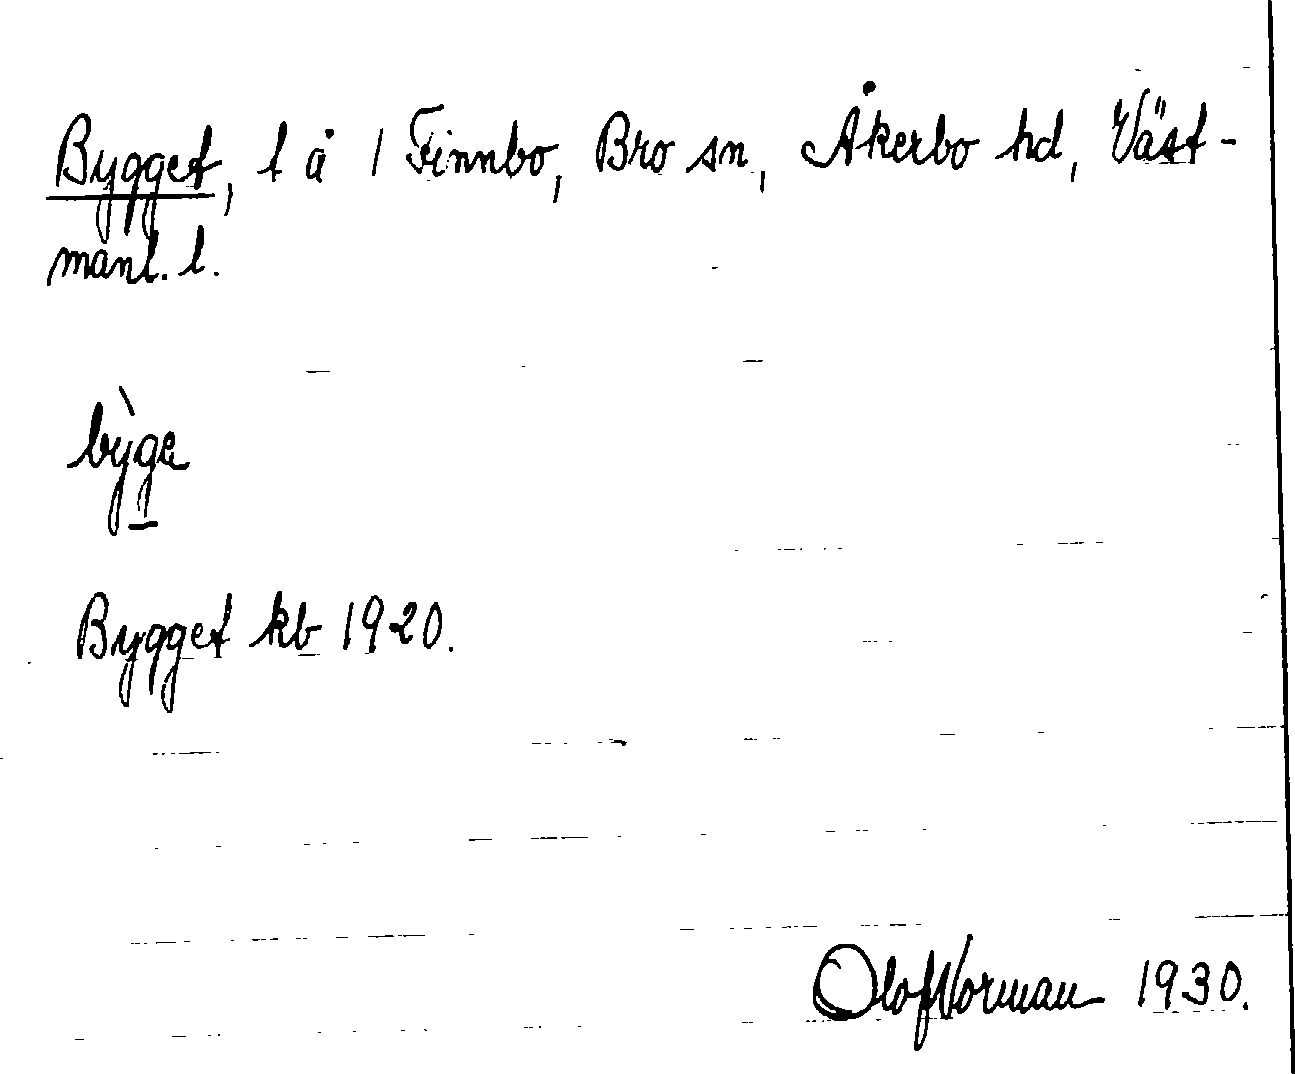 Bygget, l å 1 Finnbo, Bro sn, Åkerbo hd, Väst-
manl. l.
bỳge
Bygget kb 1920.
Olof Norman 1930.